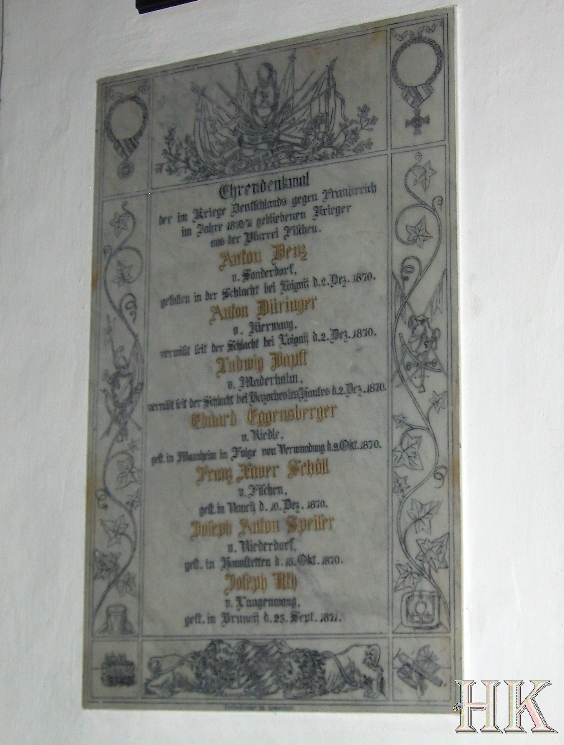 Ehrendenkmal
der im Kriege Deutschlands gegen Frankreich
im Jahre 1870/71 gebliebenen Krieger
aus der Pfarrei Fischen.
Anton Denz
v. Sonderdorf,
gefallen in der Schlacht bei Loignÿ d. 2. Dez. 1870.
Anton Düringer
v. Bierwang,
vermißt seit der Schlacht bei Loignÿ d. 2. Dez. 1870.
Ludwig Vogt
v. Maderhalm,
vermißt seit der Schlacht bei d. 2. Dez. 1870.
Eduard Eggensberger
v. Riedle,
gest. in Mannheim in Folge von Verwundung d. 9. Okt. 1870.
Franz Xaver Schöll
v. Fischen,
gest. in d. 10. Dez. 1870.
Joseph Anton Speiser
v. Niederdorf,
gest. in d. 18. Okt. 1870.
Joseph
v. Langenwang,
gest. in d. 25. Sept. 1871.
HK